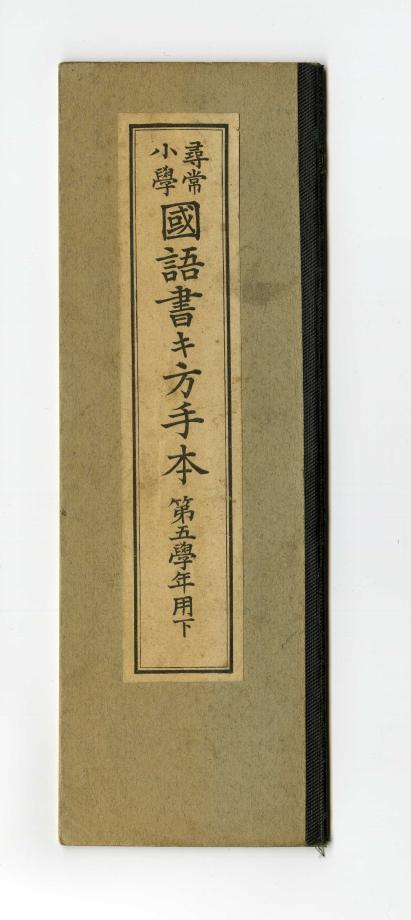 尋常
小學
國語書キ方手本
第五學年用下